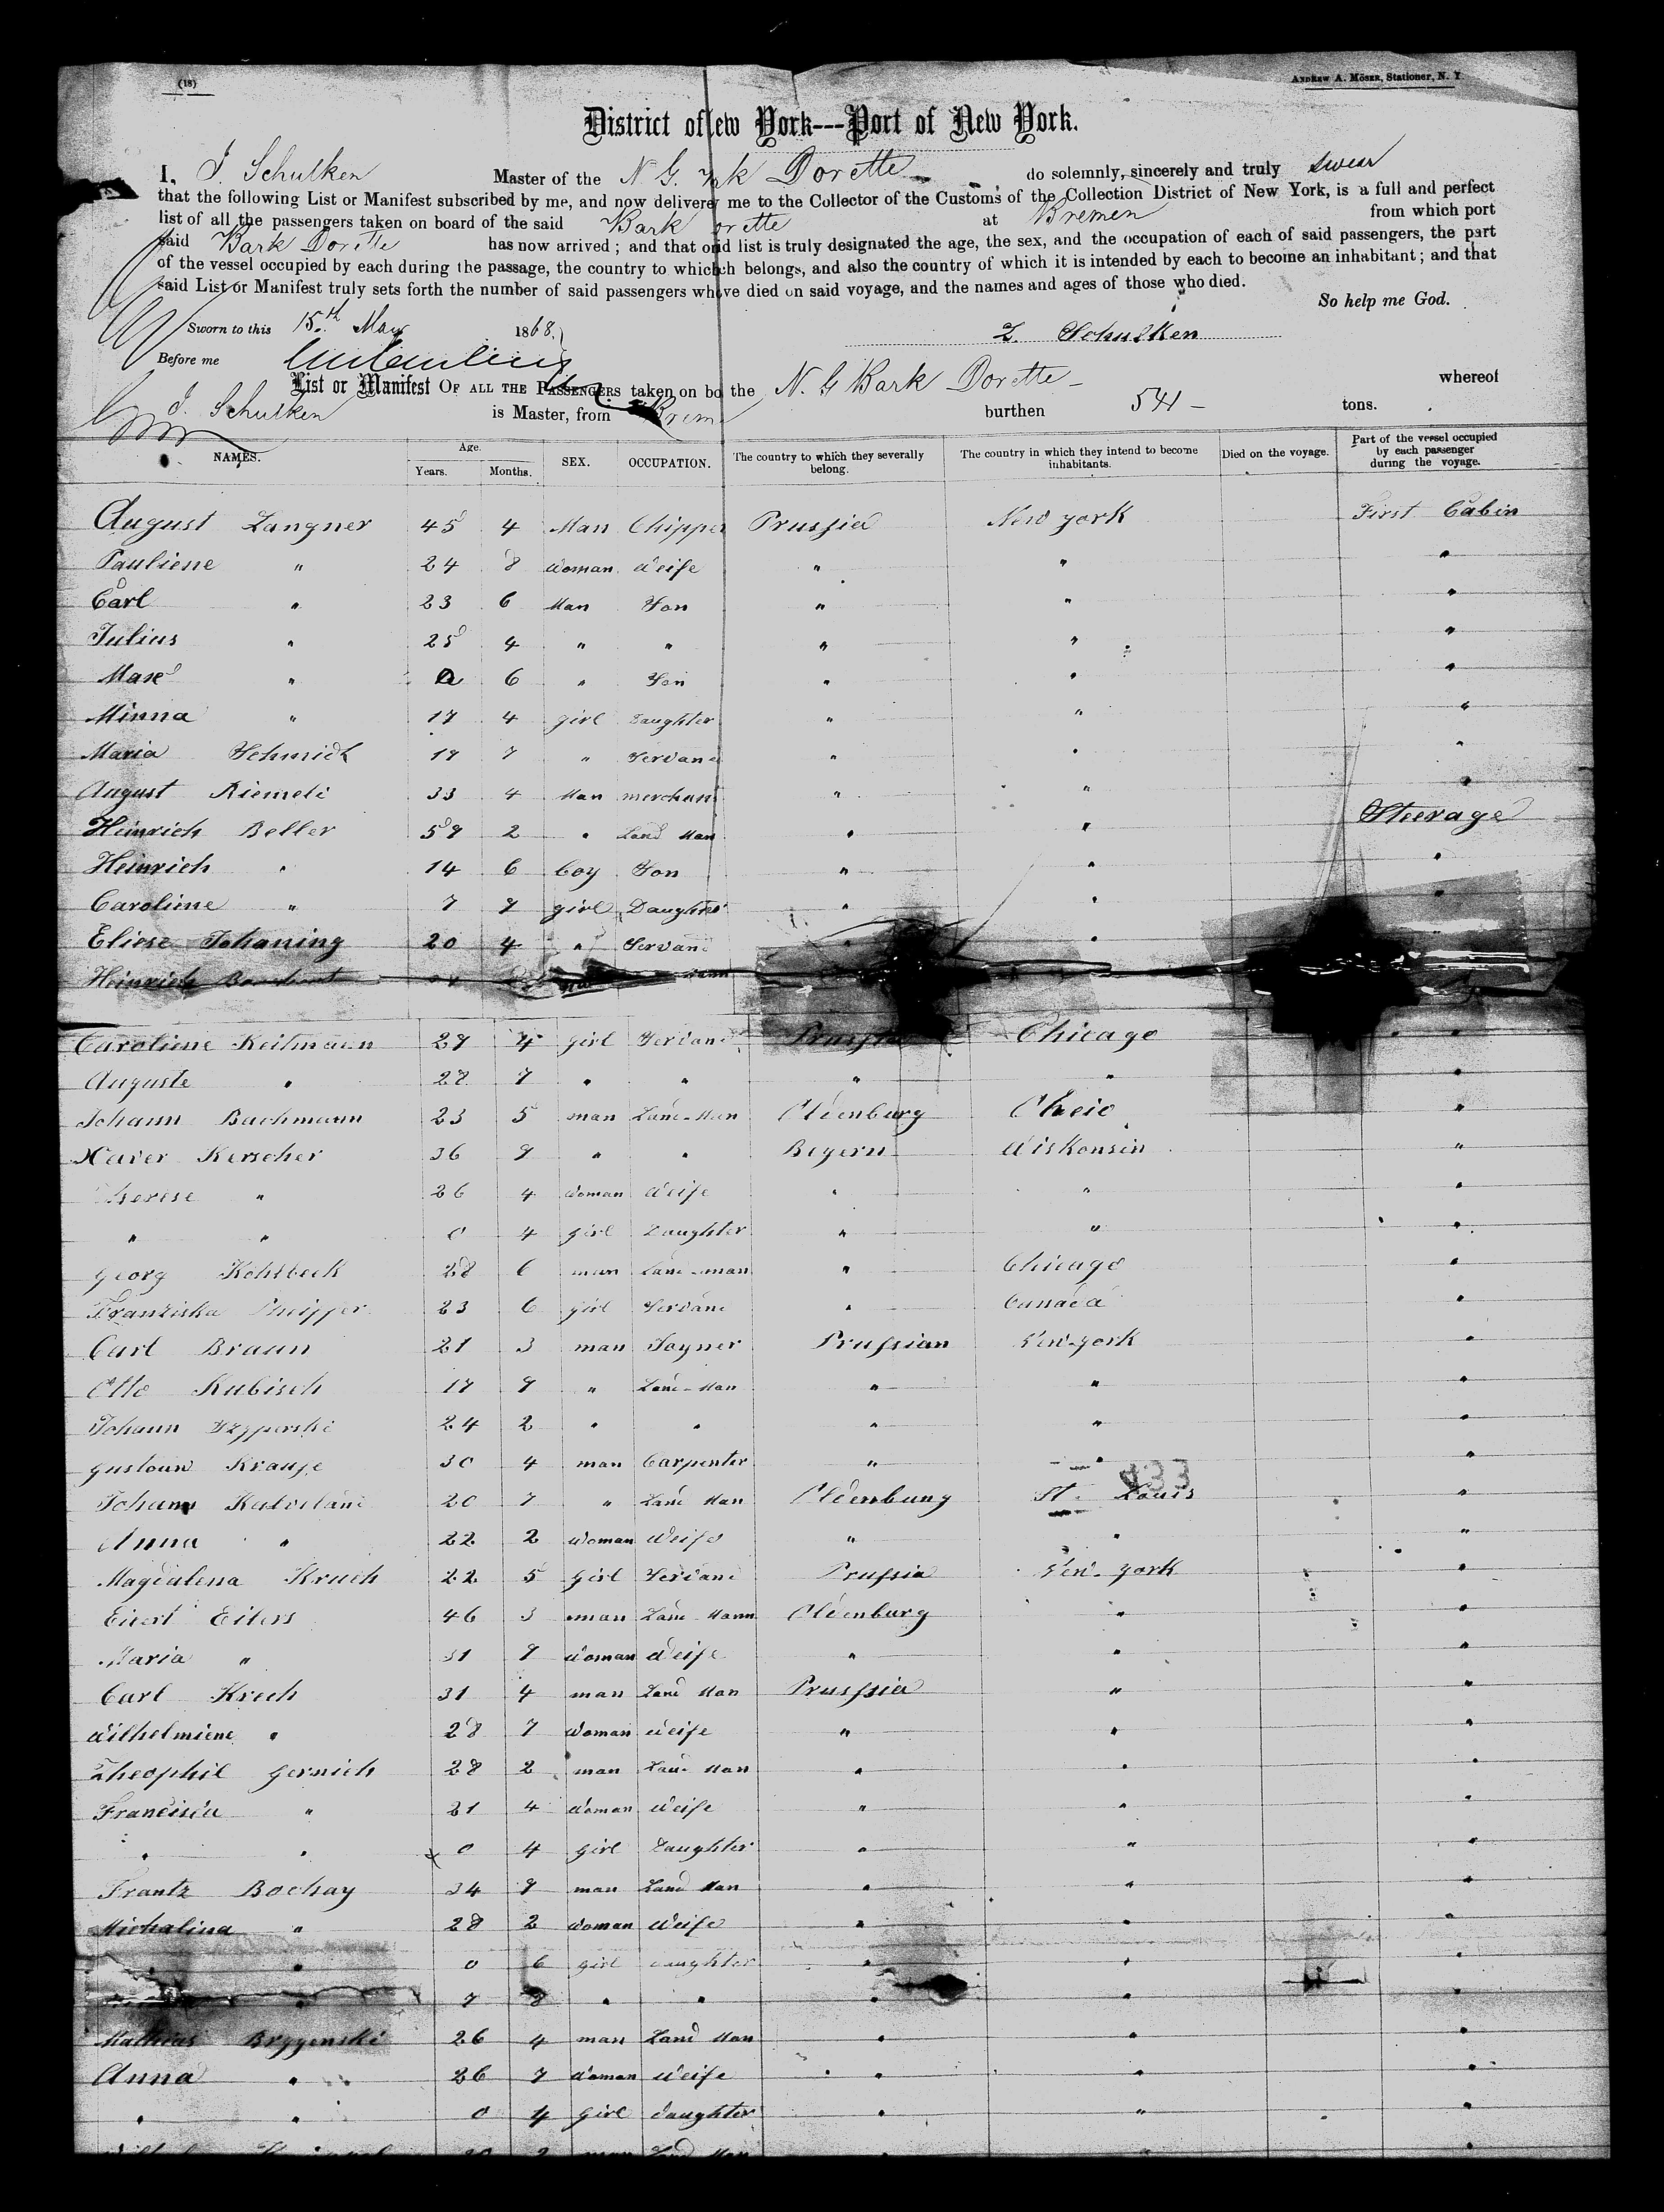 (18)
ANDREW A. MÖSER, Stationer, N. Y.
District of ew York---Port of New York.
I, J. Schulken Master of the N. G. Dorette do solemnly, sincerely and truly swear
that the following List or Manifest subscribed by me, and now delivere me to the Collector of the Customs of the Collection District of New York, is a full and perfect
list of all the passengers taken on board of the said Bark orette at Bremen from which port
said Bark Dorette has now arrived; and that on id list is truly designated the age, the sex, and the occupation of each of said passengers, the part
of the vessel occupied by each during the passage, the country to which ch belongs, and also the country of which it is intended by each to become an inhabitant; and that
said List or Manifest truly sets forth the number of said passengers wh ve died on said voyage, and the names and ages of those who died.
So help me God.
Sworn to this 15th May 1868.
J. Schulken
Before me
List or Manifest OF ALL THE PASSENGERS taken on bo the N. G Bark Dorette whereof
J. Schulken is Master, from Brem burthen 541 tons.
NAMES. Age. Years. Months. SEX. OCCUPATION. The country to which they severally belong. The country in which they intend to become inhabitants. Died on the voyage. Part of the vessel occupied by each passenger during the voyage.
August Langner 45 4 Man Chipper Prussia New york First Cabin
Pauliene " 24 8 woman Weife " " "
Carl " 23 6 Man Son " " "
Julius " 25 4 " " " " "
Max " 6 " Son " " "
Minna " 17 4 girl Daughter " " "
Maria Schmidt 17 7 " Servand " " "
August Riemeli 33 4 Man merchant " " "
Heinrich Beller 59 2 " Land Man " " Steerage
Heinrich " 14 6 boy Son " " "
Caroline " 7 9 girl Daughter " " "
Eliese Johaning 20 4 " Servand " "
Heinrich
Caroliene Keitmann 27 4 girl Servand Prussia Chicago "
Auguste " 28 7 " " " " "
Johann Bachmann 23 5 man Land-Man Oldenburg Oheio "
Xaver Kerscher 36 9 " " Beyern Wiskonsin "
Therese " 26 4 woman Weife " " "
" " 0 4 girl Daughter " " "
Georg Kohlbeck 28 6 man Land-man " Chicago "
Franziska Pheipfer 23 6 girl Servand " Canada "
Carl Braun 21 3 man Joyner Prussian New-york "
Otto Kubisch 17 9 " Land-Man " " "
Johann 24 2 " " " " "
Gustoav Krause 30 4 man Carpenter " " "
933
Johann 20 7 " Land Man Oldenburg St. Louis "
Anna " 22 2 woman Weife " " "
Magdalena Kruch 22 5 girl Servand Prussia New-york "
Eilert Eilers 46 3 man Land-Mann Oldenburg " "
Maria " 51 9 woman Weife " " "
Carl Krech 31 4 man Land Man Prussia " "
Wilhelmiene " 28 7 woman Weife " " "
Theophil Gernich 28 2 man Land Man " " "
Francisca " 21 4 woman Weife " " "
" " 0 4 girl Daughter " " "
Frantz Bochay 34 9 man Land Man " " "
Michalina " 28 2 woman Weife " " "
" " 0 6 girl daughter " " "
" 7 8 " " " " "
Mathias Bryyenski 26 4 man Land Man " " "
Anna " 26 7 woman Weife " " "
" " 0 4 girl daughter " " "
2 man Land Man " "